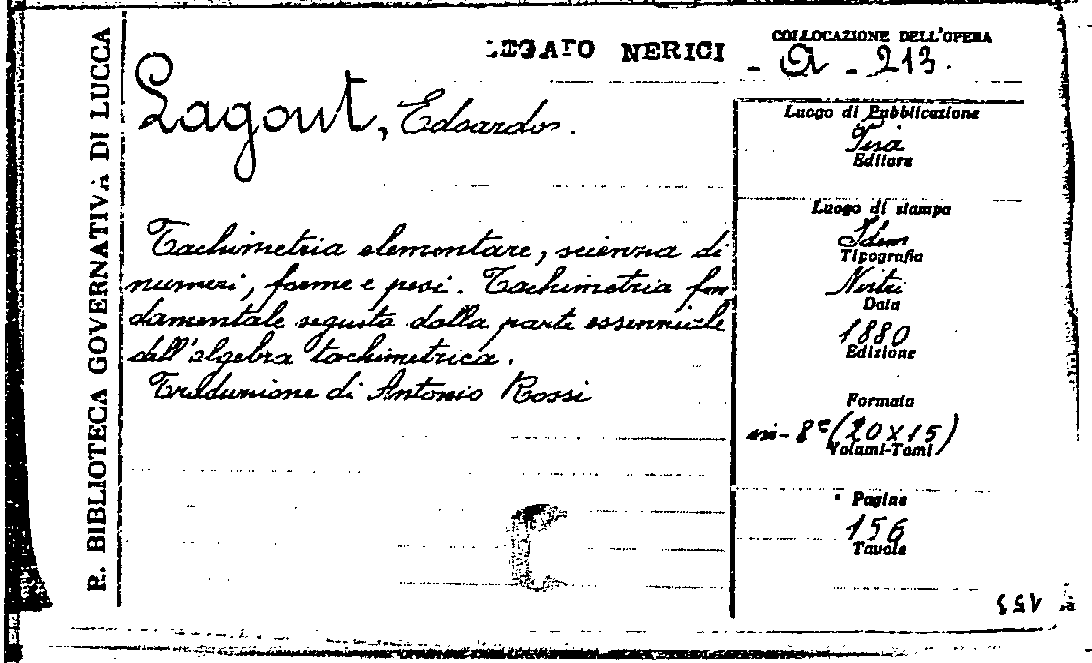 R. BIBLIOTECA GOVERNATIVA DI LUCCA
LEGATO NERICI
COLLOCAZIONE DELL'OPERA
- A - 213.
Lagout, Edoardo.
Tachimetria elementare, scienza di
numeri, forme e pesi. Tachimetria fon
damentale seguita dalla parte essenziale
dell'algebra tachimetrica.
Traduzione di Antonio Rossi
Luogo di Pubblicazione
Pisa
Editore
Luogo di stampa
Idem
Tipografia
Nistri
Data
1880
Edizione
Formato
in-8° (20x15)
Volumi-Tomi
Pagine
156
Tavole
153